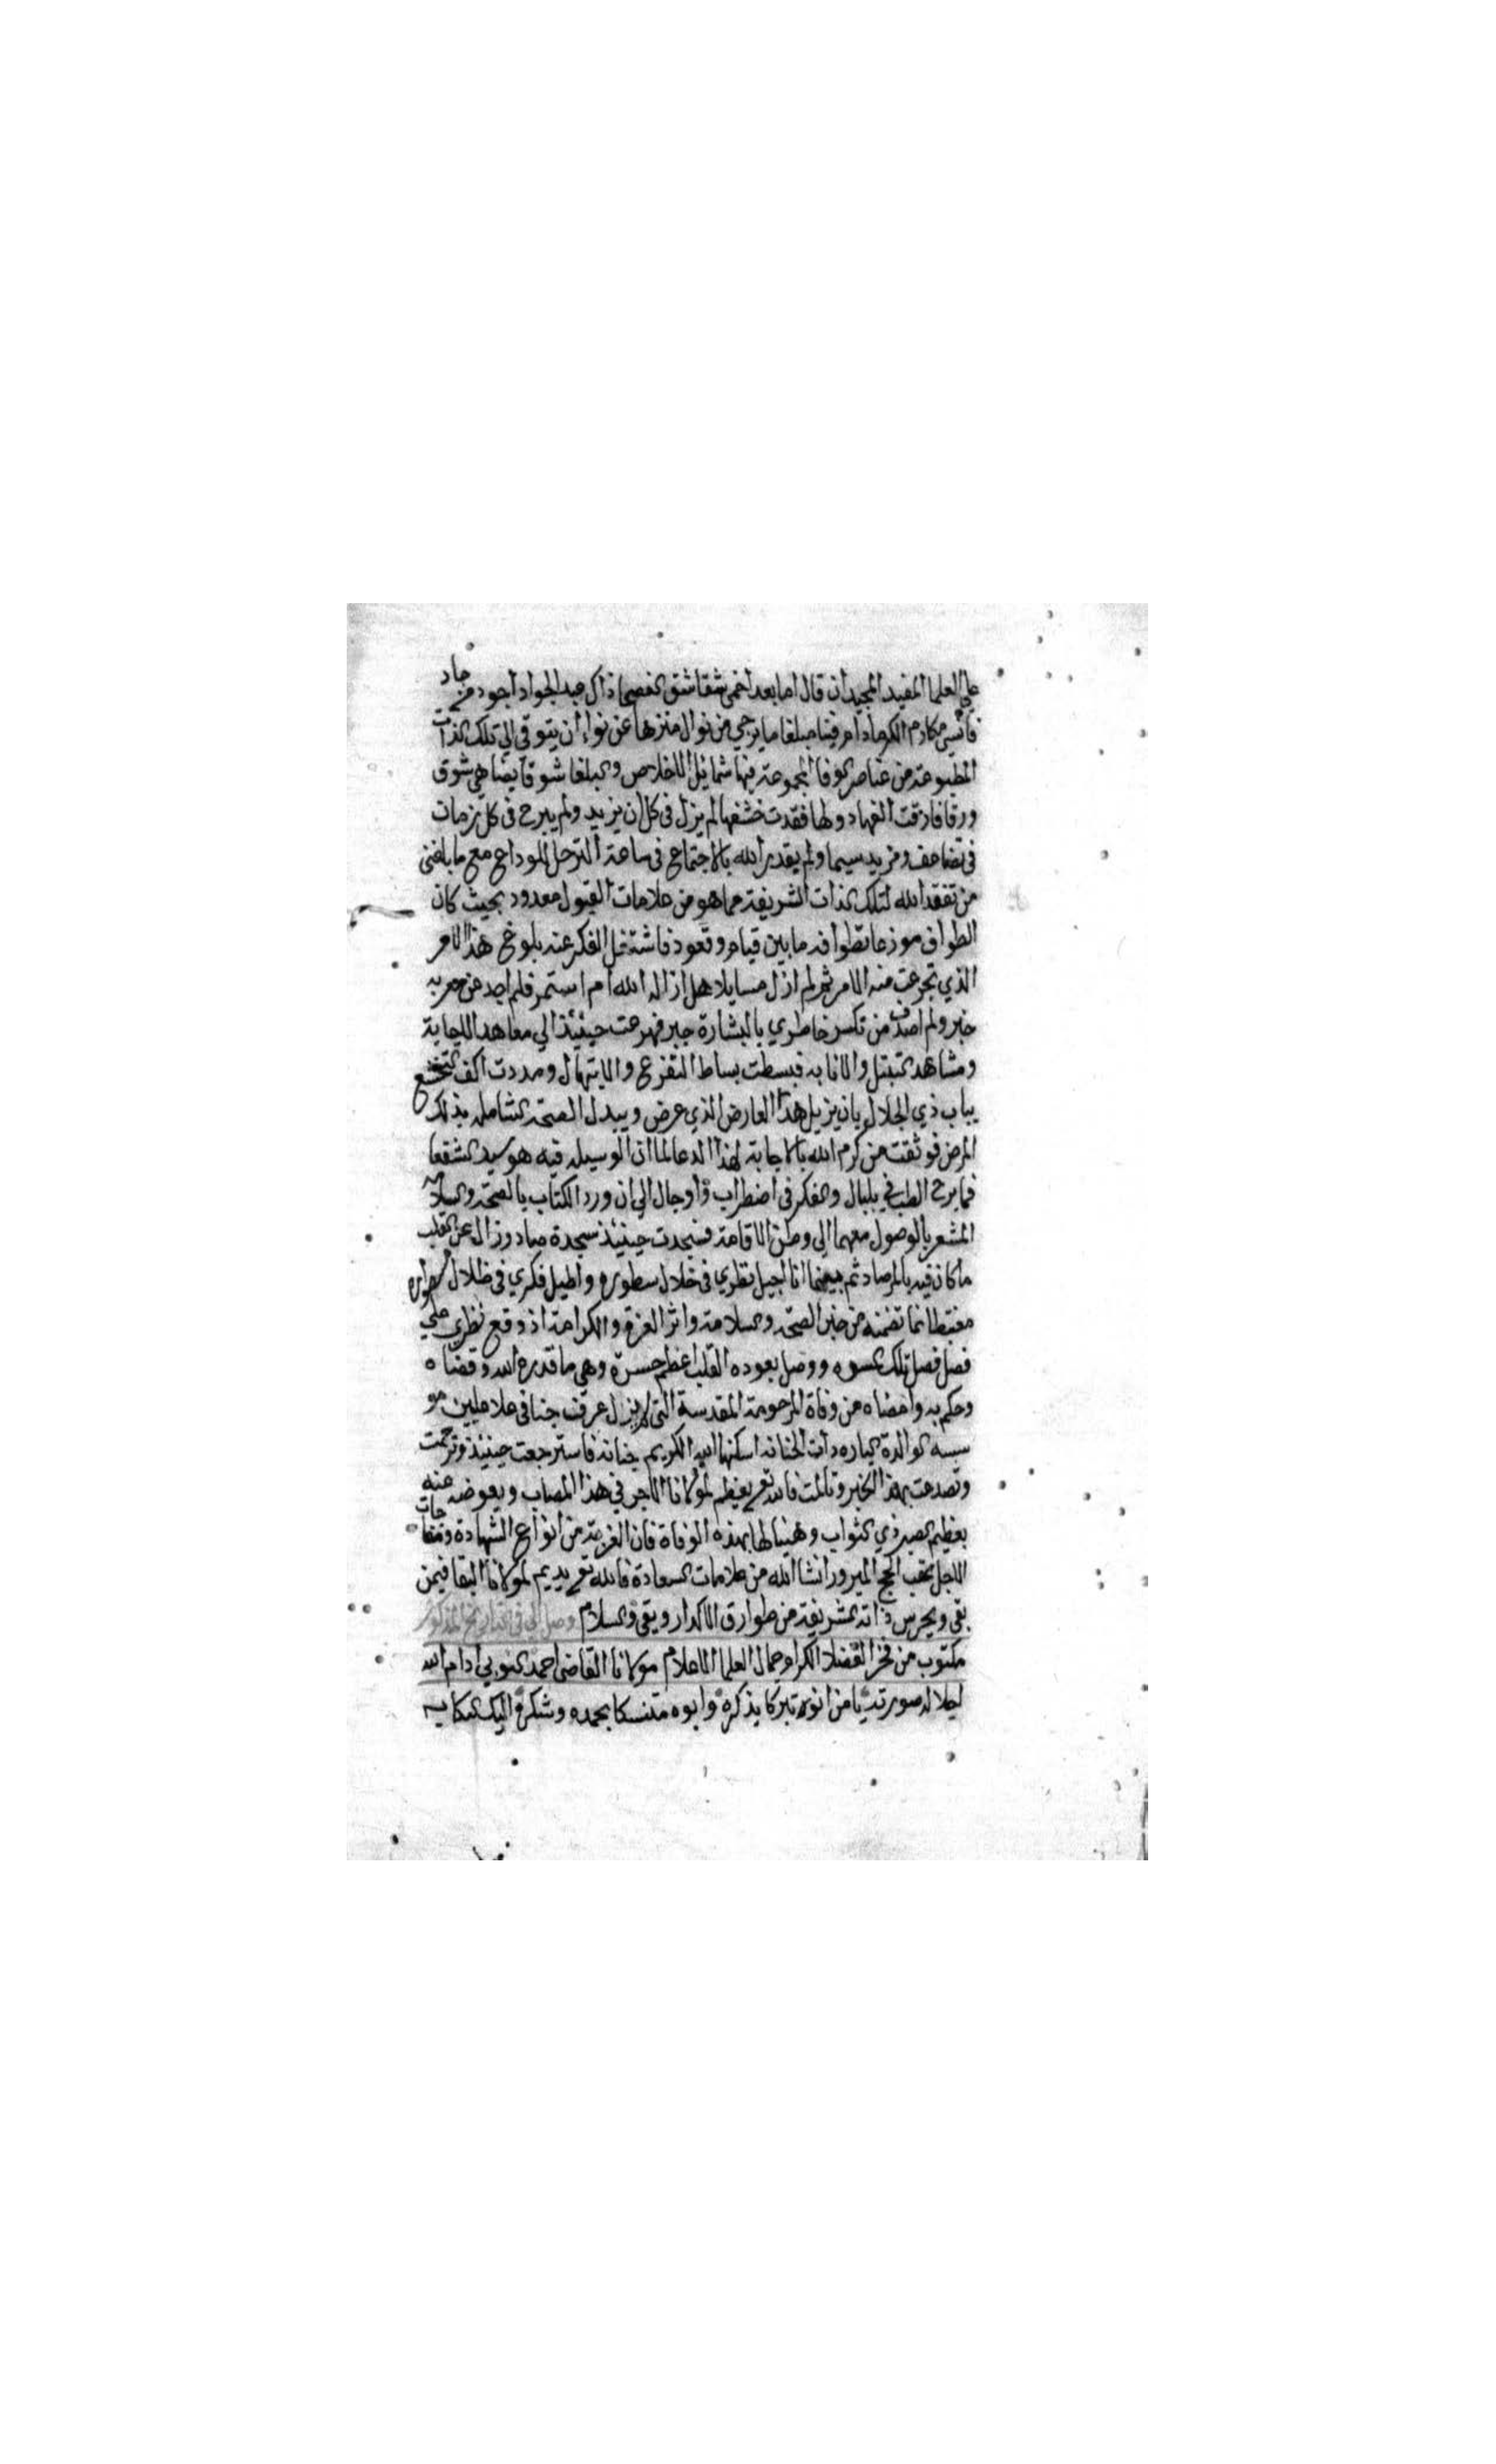 على العلما المفيد المجيد أن قال اما بعد اخمى شقاشق الفصحا ذاك عبد الجواد أجود من جاد
فأنسى مكارم الكرما دام فينا مبلغا ما يرجى من نوال منزها عن نواء أن يتوقى إلى تلك الذات
المطبوعة من عناصر الوفا المجموعة فيها شمائل الاخلاص والبلغا شوقا يضاهي شوق
ورقا فارقت الفها دولها فقدت خشفها لم يزل في كل ان يزيد ولم يبرح في كل زمان
في تضاعف ومزيد سيما ولم يقدر الله بالاجتماع في ساعة الترحل للوداع مع ما بلغني
من تفقد الله لتلك الذات الشريفة مما هو من علامات القبول معدود بحيث كان
الطواف موزعا تطوافه ما بين قيام وقعود فاشتغل الفكر عند بلوغي هذا الامر
الذي تجرعت منه الامر ثم لم ازل مسايلا هل ازاله الله أم استمر فلم اجد من معربه
خبر ولم اصدف من تكسر خاطري بالبشارة جبر فهرعت حينئذ الي معاهد الاجابة
ومشاهد التبتل والانابه فبسطت بساط التفزع والابتهال ومددت اكف التخشع
بباب ذي الجلال بان يزيل هذا العارض الذي عرض ويبدل الصحة الشامله بذلك
المرض فوثقت من كرم الله بالاجابة لهذا الدعا لما ان الوسيله فيه هو سيد الشفعا
فما برح القلب في بلبال والفكر في اضطراب وأوجال إلى ان ورد الكتاب بالصحة والسلامه
المشعر بالوصول معهما الي وطن الاقامة فسجدت حينئذ سجدة صاد وزال عن القلب
ما كان فيه بالمرصاد ثم بينما انا اجيل نظري في خلال سطوره واطيل فكري في ظلال
مغتبطا بما تضمنه من خبر الصحة والسلامة واثر العزة والكرامة اذ وقع نظري على
فصل فصل تلك وو وصل بعوده القلب اعظم حسرة وهي ما قدره الله وقضاه
وحكم به وامضاه من وفاة المرحومة المقدسة التي لم يزل عرف جنا في علا عليين مو
سسه الوالدة الباره ذات الحنانه اسكنها الله الكريم جنانه فاسترجعت حينئذ وترحمت
وتصدعت بهذا الخبر وتالمت فالله تع يعظم لمولانا الاجر في هذا المصاب ويعوضه عنه
بعظيم الصبر ذي الثواب وهنيا لها بهذه الوفاة فان الغربة من انواع الشهادة ومفاجات
الاجل عقب الحج المبرور انشا الله من علامات السعادة فالله تع يديم لمولانا البقا فيمن
بقي ويحرس ذاته الشريفة من طوارق الاكدار ويقي والسلام وصل الي في التاريخ المذكور
مكتوب من فخر الفضلا الكرام جمال العلما الاعلام مولانا القاضى احمد النوبي أدام الله
اجلاله صورته يا من انوه تبركا بذكره وابوه متنسكا بحمده وشكره اليك